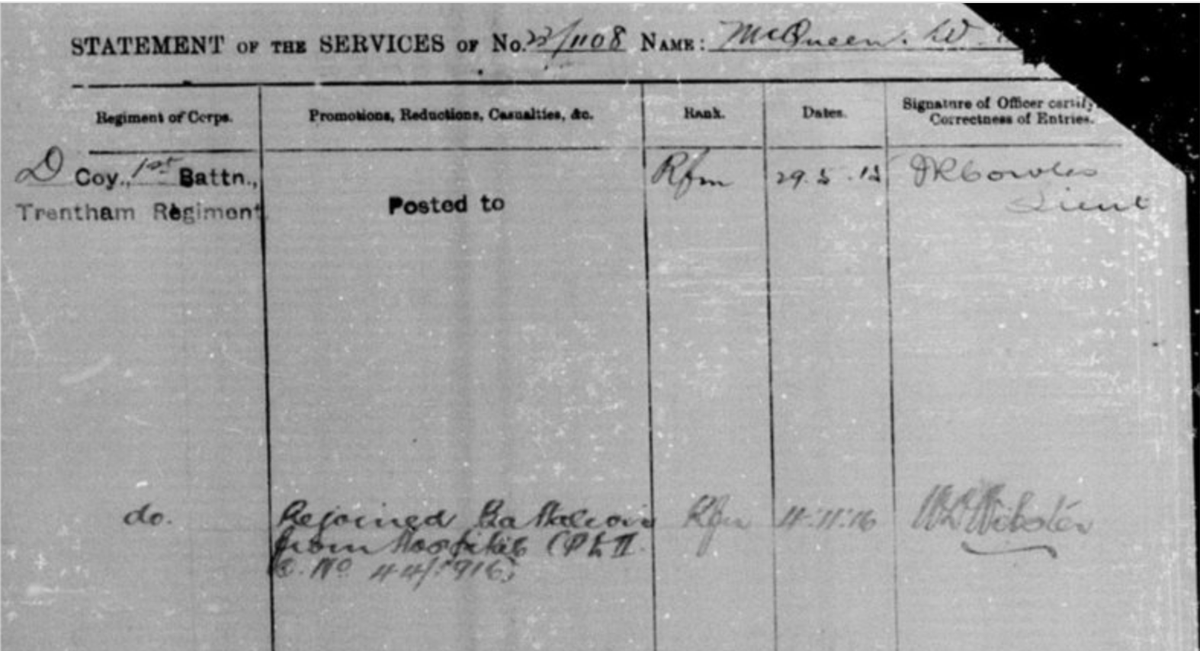 STATEMENT OF THE SERVICES OF No. 23/1108 NAME: McQueen. W.
Regiment of Corps. Promotions, Reductions, Casualties, &c. Rank. Dates. Signature of Officer certify
Correctness of Entries.
D Coy., 1st Battn., Rfm 29.5.15 Lieut
Trentham Regiment Posted to
do. Rejoined Battalion Rfm 11.11.16 Webster
from Hospital (Pt II
O. No 44/1916)